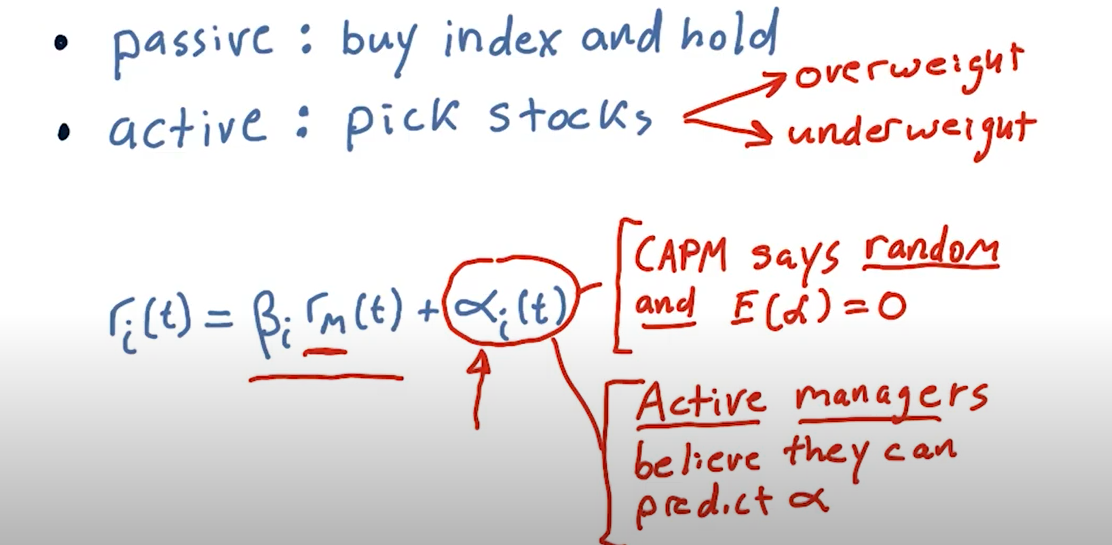 • passive : buy index and hold
• active : pick stocks
overweight
underweight
rᵢ(t) = βᵢ rₘ(t) + αᵢ(t)
CAPM says random
and E(α) = 0
Active managers
believe they can
predict α